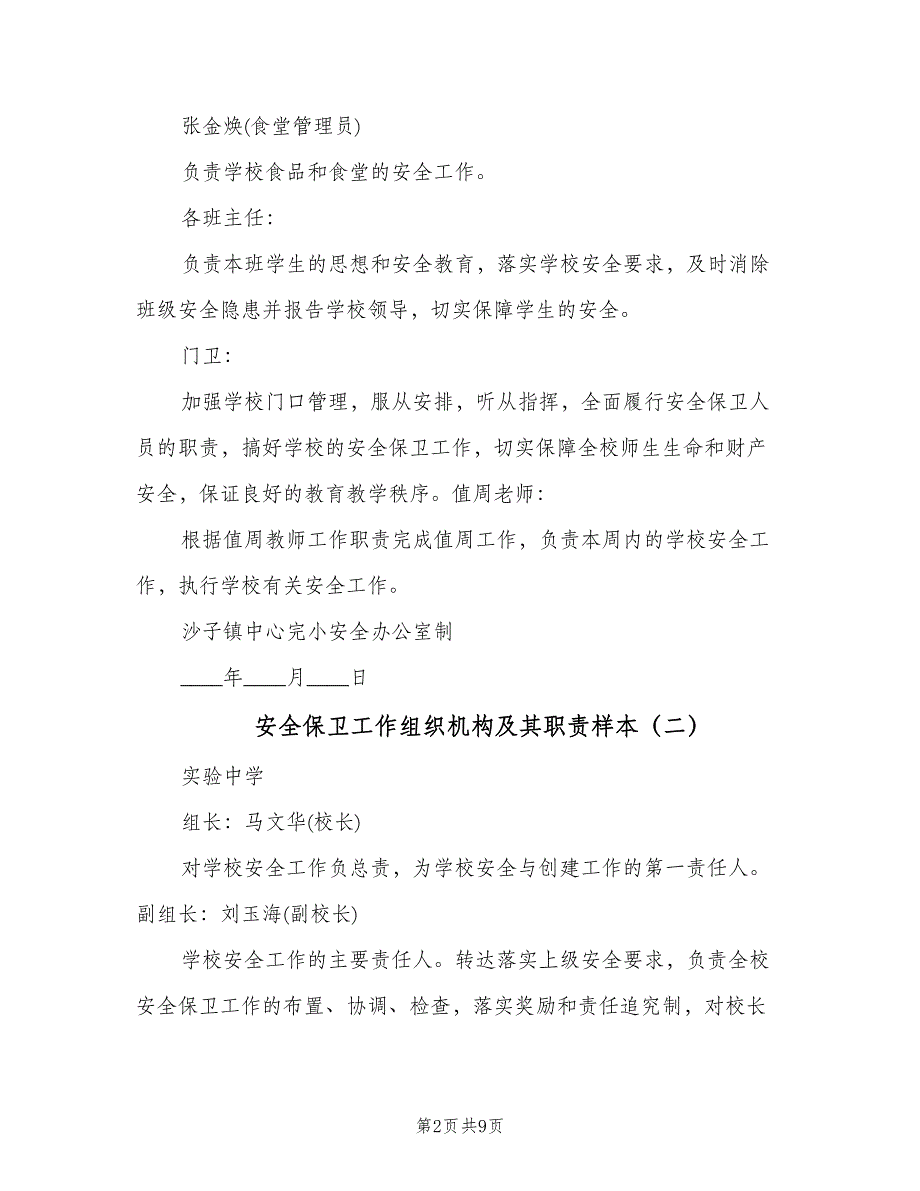 张金焕(食堂管理员)
负责学校食品和食堂的安全工作。
各班主任：
负责本班学生的思想和安全教育，落实学校安全要求，及时消除
班级安全隐患并报告学校领导，切实保障学生的安全。
门卫：
加强学校门口管理，服从安排，听从指挥，全面履行安全保卫人
员的职责，搞好学校的安全保卫工作，切实保障全校师生生命和财产
安全，保证良好的教育教学秩序。值周老师：
根据值周教师工作职责完成值周工作，负责本周内的学校安全工
作，执行学校有关安全工作。
沙子镇中心完小安全办公室制
____年____月____日
安全保卫工作组织机构及其职责样本（二）
实验中学
组长：马文华(校长)
对学校安全工作负总责，为学校安全与创建工作的第一责任人。
副组长：刘玉海(副校长)
学校安全工作的主要责任人。转达落实上级安全要求，负责全校
安全保卫工作的布置、协调、检查，落实奖励和责任追究制，对校长
第2页共9页